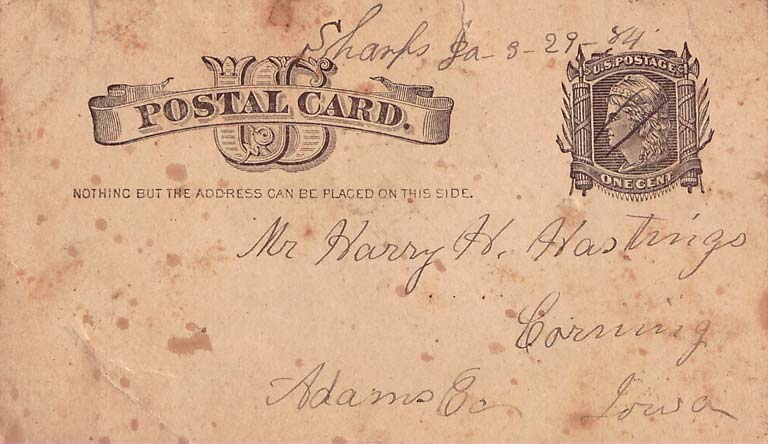 Sharps Ia 3-29-84
US
POSTAL CARD.
U.S. POSTAGE
ONE CENT
NOTHING BUT THE ADDRESS CAN BE PLACED ON THIS SIDE.
Mr Harry H. Hastings
Corning
Adams Co Iowa